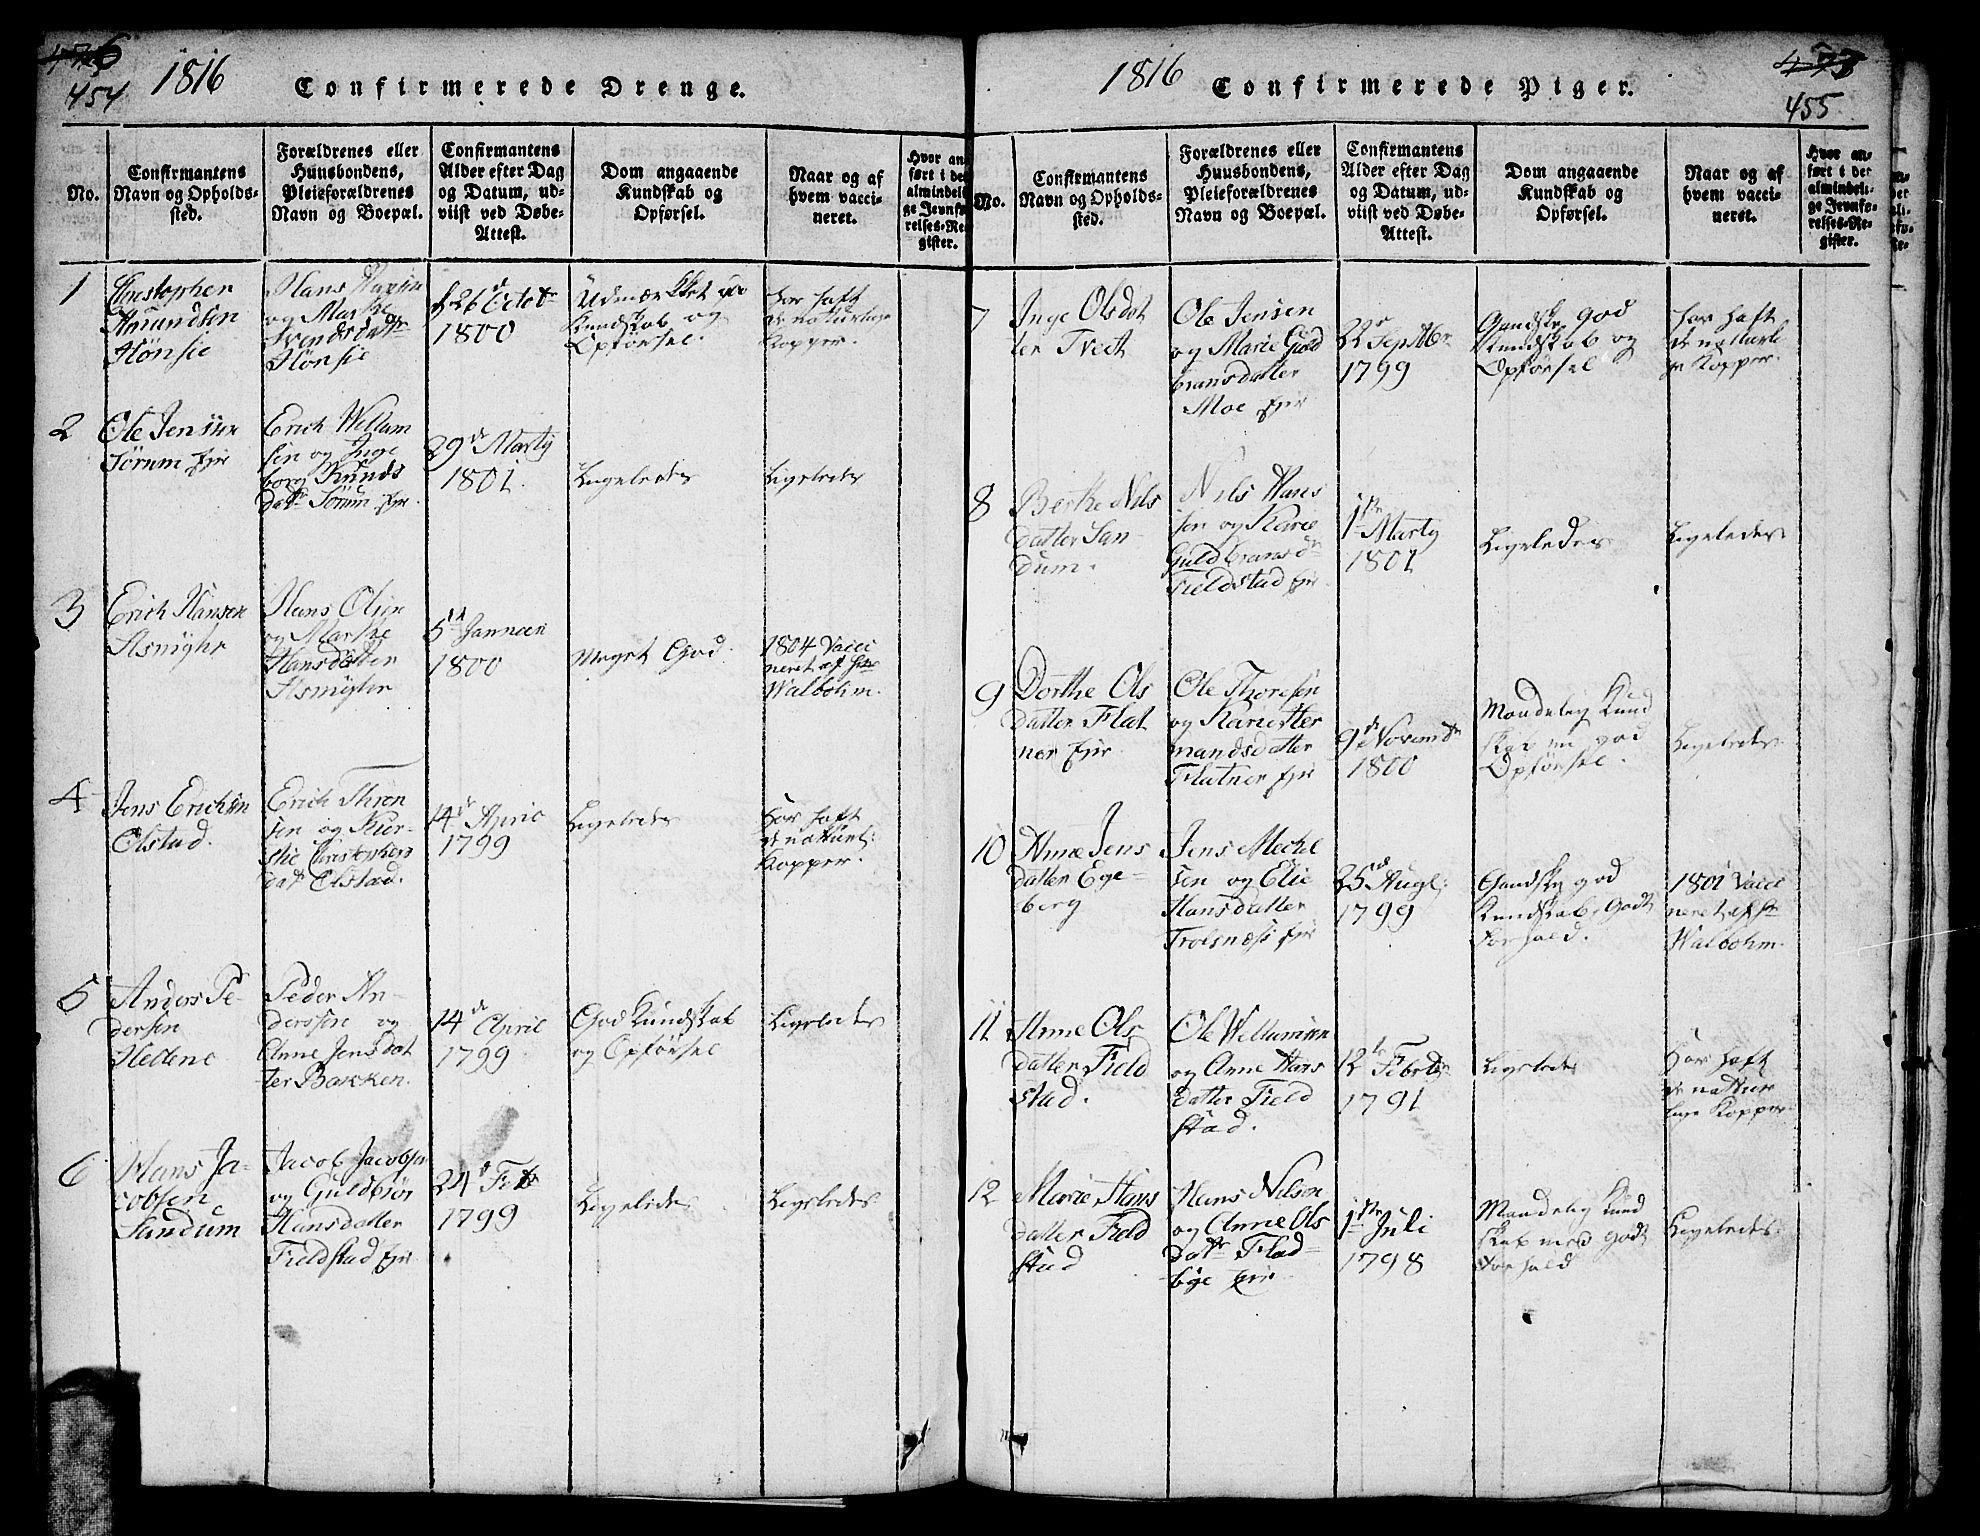 454
1816
Confirmerede Drenge.
No.
Confirmantens
Navn og Opholds-
sted.
Forældrenes eller
Huusbondens,
Pleieforældrenes
Navn og Boepæl.
Confirmantens
Alder efter Dag
og Datum, ud-
viist ved Døbe-
Attest.
Dom angaaende
Kundskab og
Opførsel.
Naar og af
hvem vacci-
neret.
Hvor an
ført i de
almindeli
ge Jevnfø
relses-Re
gister.
1
Christophen
Amundsen
Hønsie
Hans
og Marthe
Svendsdattr
Hønsie
26d Octobr
1800
Udmærkket god
Kundskab og
Opførsel.
har haft
de naturlige
Kopper.
2
Ole Jensen
Sørum Eje
Erich Wellum
sen og Inge
borg Knuds
datr Sørum Eje.
29d Marty
1801.
Ligeledes
Ligeledes
3
Erich Hansen
Asmyhr
Hans Olsen
og Marthe
Hansdatter
Asmyhr
5te Januari
1800
Meget God.
1804 Vacci
neret af Hr
Walbohm.
4
Jens Erichsen
Olstad.
Erich Thron
sen og Kier-
stie Christophers
datr Olstad.
14de April
1799
Ligeledes
Har haft
de naturl:
Kopper.
5
Anders Pe-
dersen
Hellene
Peder An-
derssen og
Anne Jensdat
ter Bakken.
14de April
1799
God Kundskab
og Opførsel
Ligeledes
6
Hans Ja-
cobsen
Sandum
Jacob Jacobsen
og Guldbiør
Hansdatter
Fieldstad Eje
24d Febr
1799
Ligeledes
Ligeledes
1816
Confirmerede Piger.
455
No.
Confirmantens
Navn og Opholds-
sted.
Forældrenes eller
Huusbondens,
Pleieforældrenes
Navn og Boepæl.
Confirmantens
Alder efter Dag
og Datum, ud-
viist ved Døbe-
Attest.
Dom angaaende
Kundskab og
Opførsel.
Naar og af
hvem vacci-
neret.
Hvor an-
ført i der
almindeli-
ge Jevnfø-
relses-Re-
gister.
7
Inge Olsdat
ter Tveit
Ole Jensen
og Marie Guld
bransdatter
Moe Eje
22de Septbr
1799
Gandske god
Kundskab og
Opførsel
har haft
de naturli
ge Kopper.
8
Berthe Nils
datter San-
dum.
Nils Hans
sen og Karie
Guldbransdr
Fieldstad Eje.
1ste Marty
1801
Ligeledes
Ligeledes
9
Dorthe Ols
datter Flat
ner Eje
Ole Thoresen
og Karie Her
mandsdatter
Flatner Eje
9de Novembr
1800
Maadelig Kund
skab en god
Opførsel.
Ligeledes
10
Anne Jens
datter Ege-
berg
Jens Mechel
sen og Elie
Hansdatter
Trolsnæss Eje
25de Augt:
1799
Gandske god
Kundskab, godt
Forhold.
1801 Vacci
neret af Hr
Walbohm.
11
Anne Ols
datter Field
stad.
Ole Wellumsen
og Anne Hans
datter Field
stad.
12te Febr
1791
Ligeledes
Har haft
de natur
lige Kopper.
12
Marie Hans
datter Field
stad
Hans Nilsen
og Anne Ols
datr Flad-
bye Eje
1ste Juli
1798
Maadelig Kund
skab med godt
Forhold
Ligeledes.